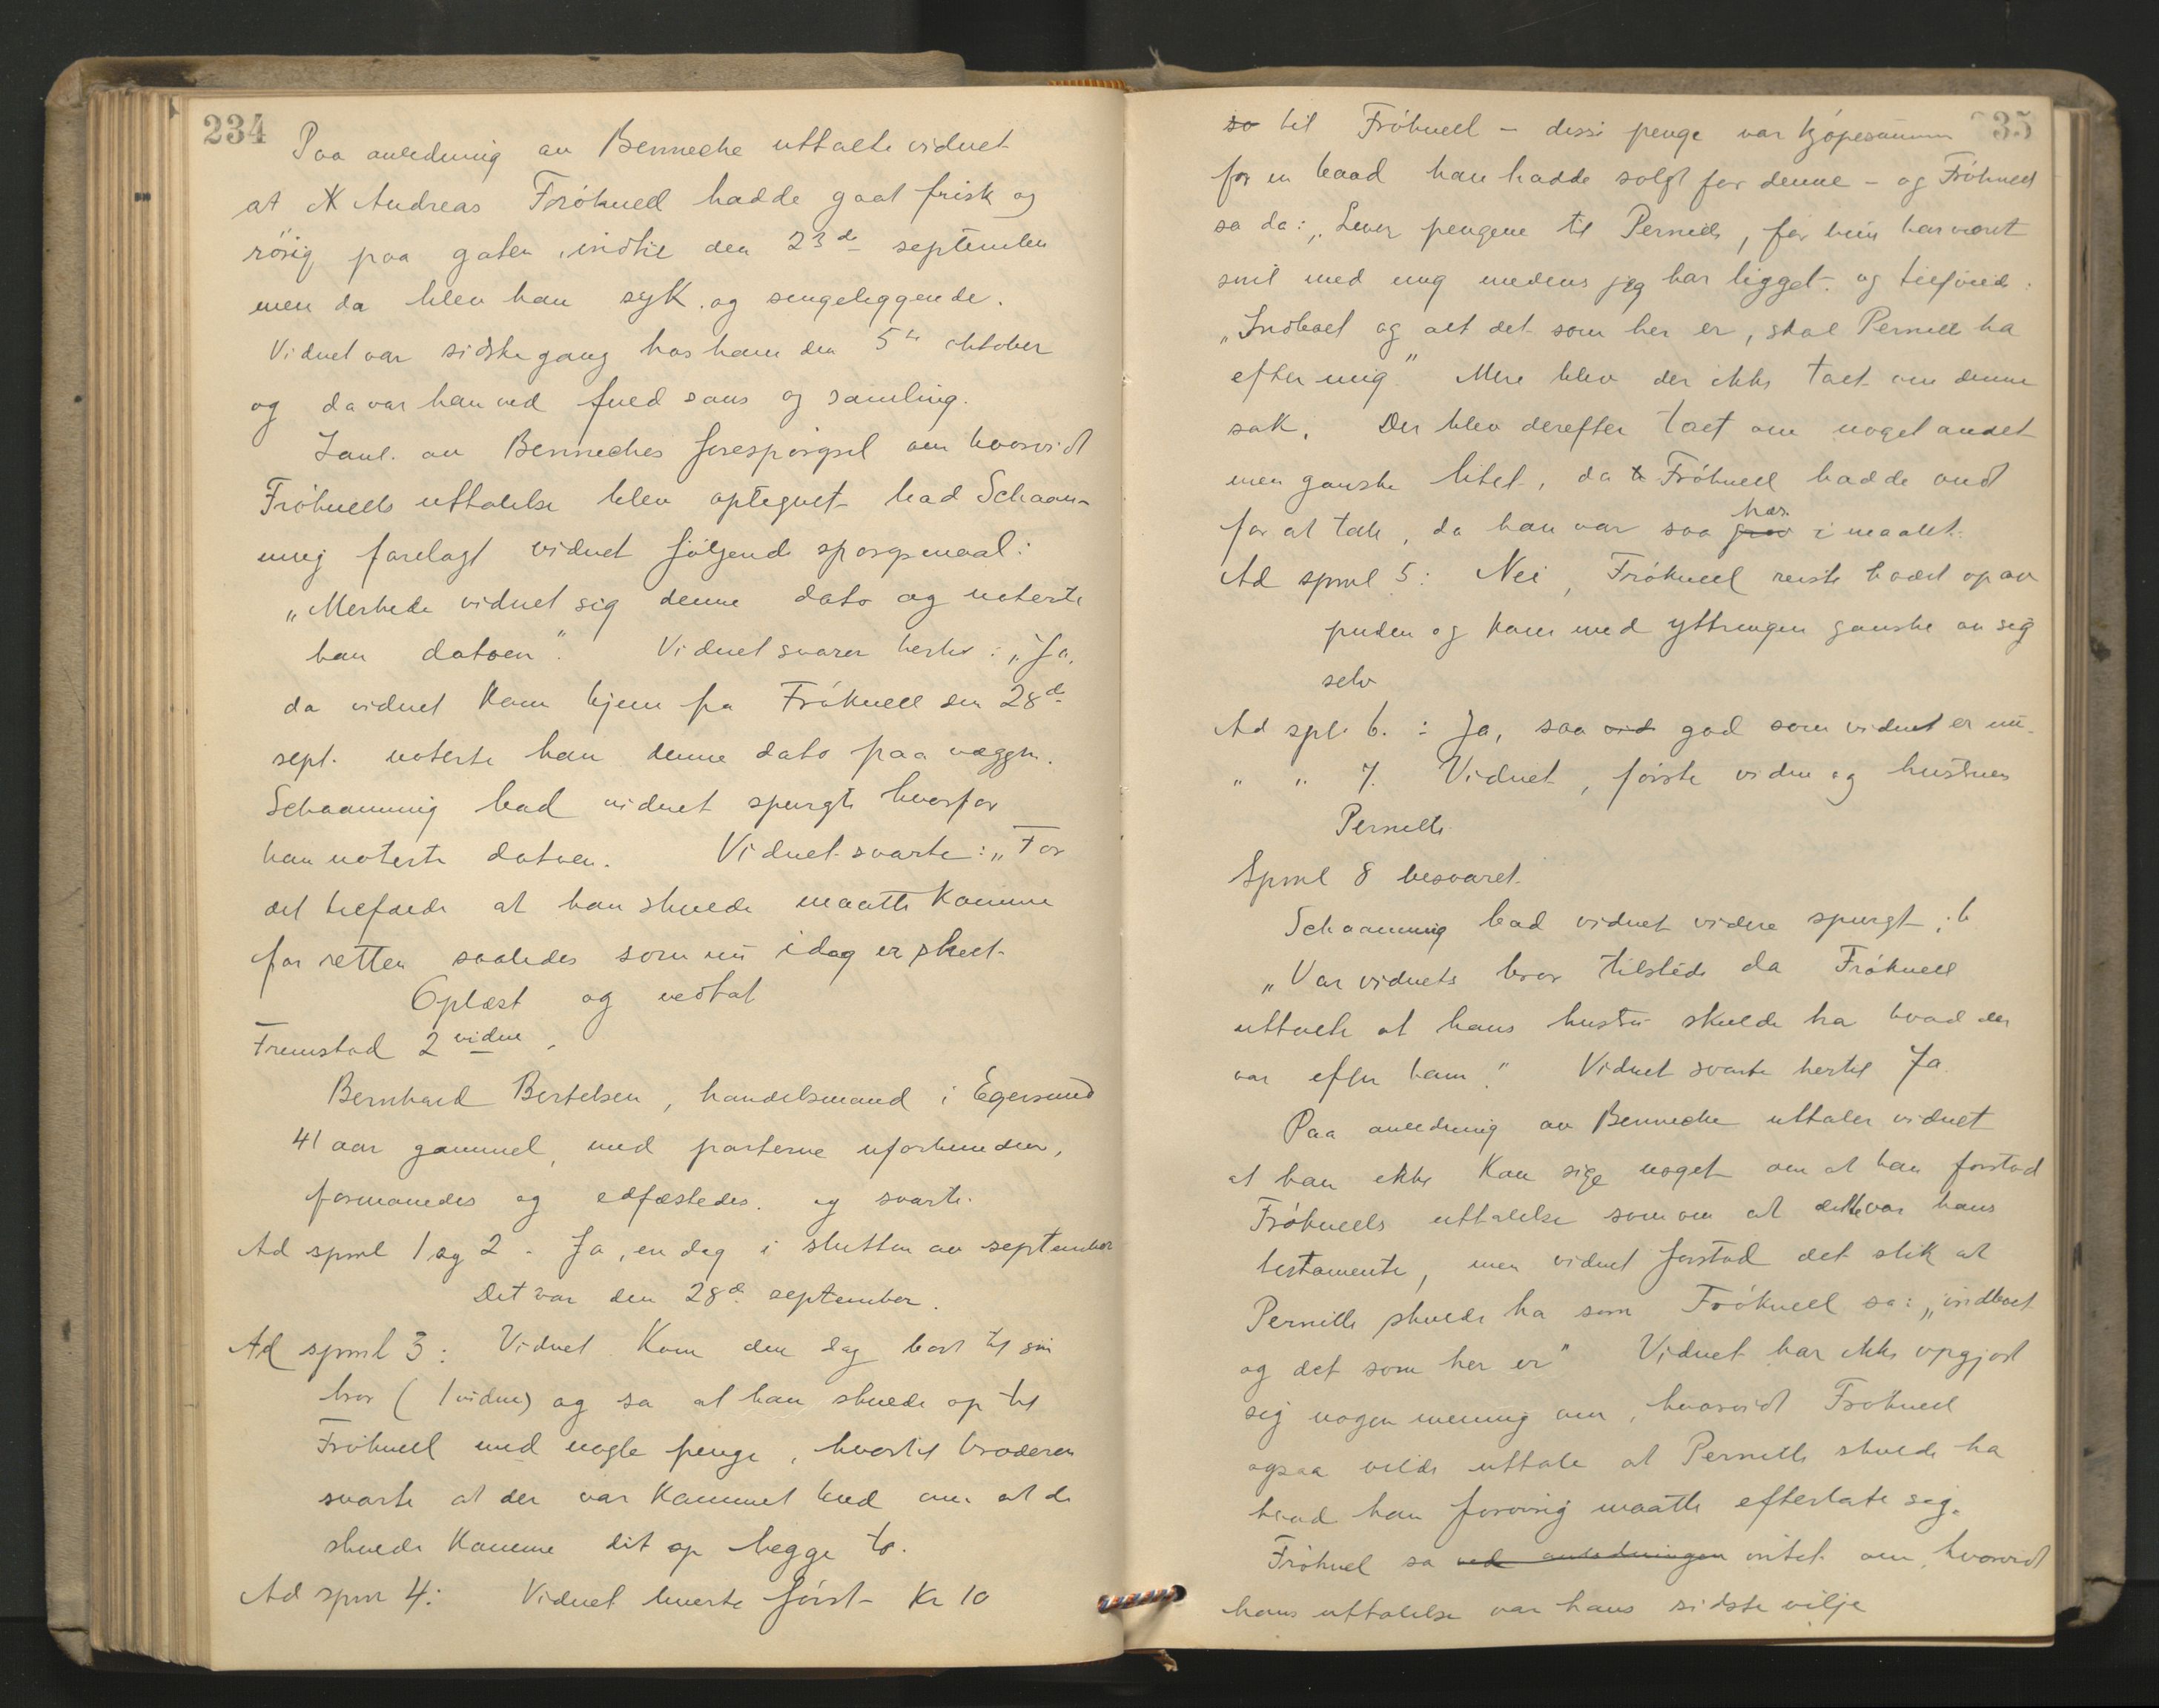 234
Paa anledning av Benneche uttalte vidnet
at Andreas Frøknell hadde gaat frisk og
rørig paa gaten indtil den 23de september
men da blev han syk og sengeliggende.
Vidnet var sidste gang hos ham den 5te oktober
og da var han ved fuld sans og samling.
I anl. av Benneches forespørgsel om hvorvidt
Frøknells uttalelse blev optegnet bad Schaan-
ning forelagt vidnet følgende spørgsmaal:
„Merkede vidnet sig denne dato og noterte
han datoen". Vidnet svarer hertil: „Ja,
da vidnet kom hjem fra Frøknell den 28de
sept. noterte han denne dato paa væggen.
Schaanning bad vidnet spurgt hvorfor
han noterte datoen. Vidnet svarte: „For
det tilfælde at han skulde maatte komme
for retten saaledes som nu idag er skeet.
Oplæst og vedtat
Fremstod 2 vidne,
Bernhard Bertelsen, handelsmand i Egersund
41 aar gammel, med parterne uforbunden,
formanedes og edfæstedes. og svarte.
Ad spml 1 og 2 - Ja, en dag i slutten av september
Det var den 28de september.
Ad spml 3: Vidnet kom den dag bort til sin
bror (1 vidne) og sa at han skulde op til
Frøknell med nogle penge, hvortil broderen
svarte at der var kommet bud om at de
skulde komme dit op begge to.
Ad spm 4: Vidnet leverte først Kr 10
35
so til Frøknell - disse penge var kjøpesummen
for en baad han hadde solgt for denne - og Frøknell
sa da: „Lever pengene til Pernille, for hun har været
snil med mig medens jeg har ligget - og tilføied:
„Indboet og alt det som her er, skal Pernille ha
efter mig" Mere blev der ikke talt om denne
sak. Der blev derefter talt om noget andet
men ganske litet, da Frøknell hadde ondt
for at tale, da han var saa hæs i maalet.
Ad spml 5: Nei, Frøknell reiste hodet op av
puden og kom med yttringen ganske av sig
selv
Ad spl. 6. : Ja, saa vid god som vidnet er nu.
" " 7. Vidnet, første vidne og hustruen
Pernille.
Spml 8 besvaret.
Schaanning bad vidnet videre spurgt:
„Var vidnets bror tilstede da Frøknell
uttalte at hans hustru skulde ha hvad der
var efter ham." Vidnet svarte hertil Ja.
Paa anledning av Bennecke uttaler vidnet
at han ikke kan sige noget om at han forstod
Frøknells uttalelse som om at dette var hans
testamente, men vidnet forstod det slik at
Pernille skulde ha som Frøknell sa: „indboet
og det som her er" Vidnet har ikke opgjort
sig nogen mening om, hvorvidt Frøknell
ogsaa vilde uttale at Pernille skulde ha
hvad han forøvrig maatte efterlate sig.
Frøknell sa ved anledningen intet om, hvorvidt
hans uttalelse var hans sidste vilje